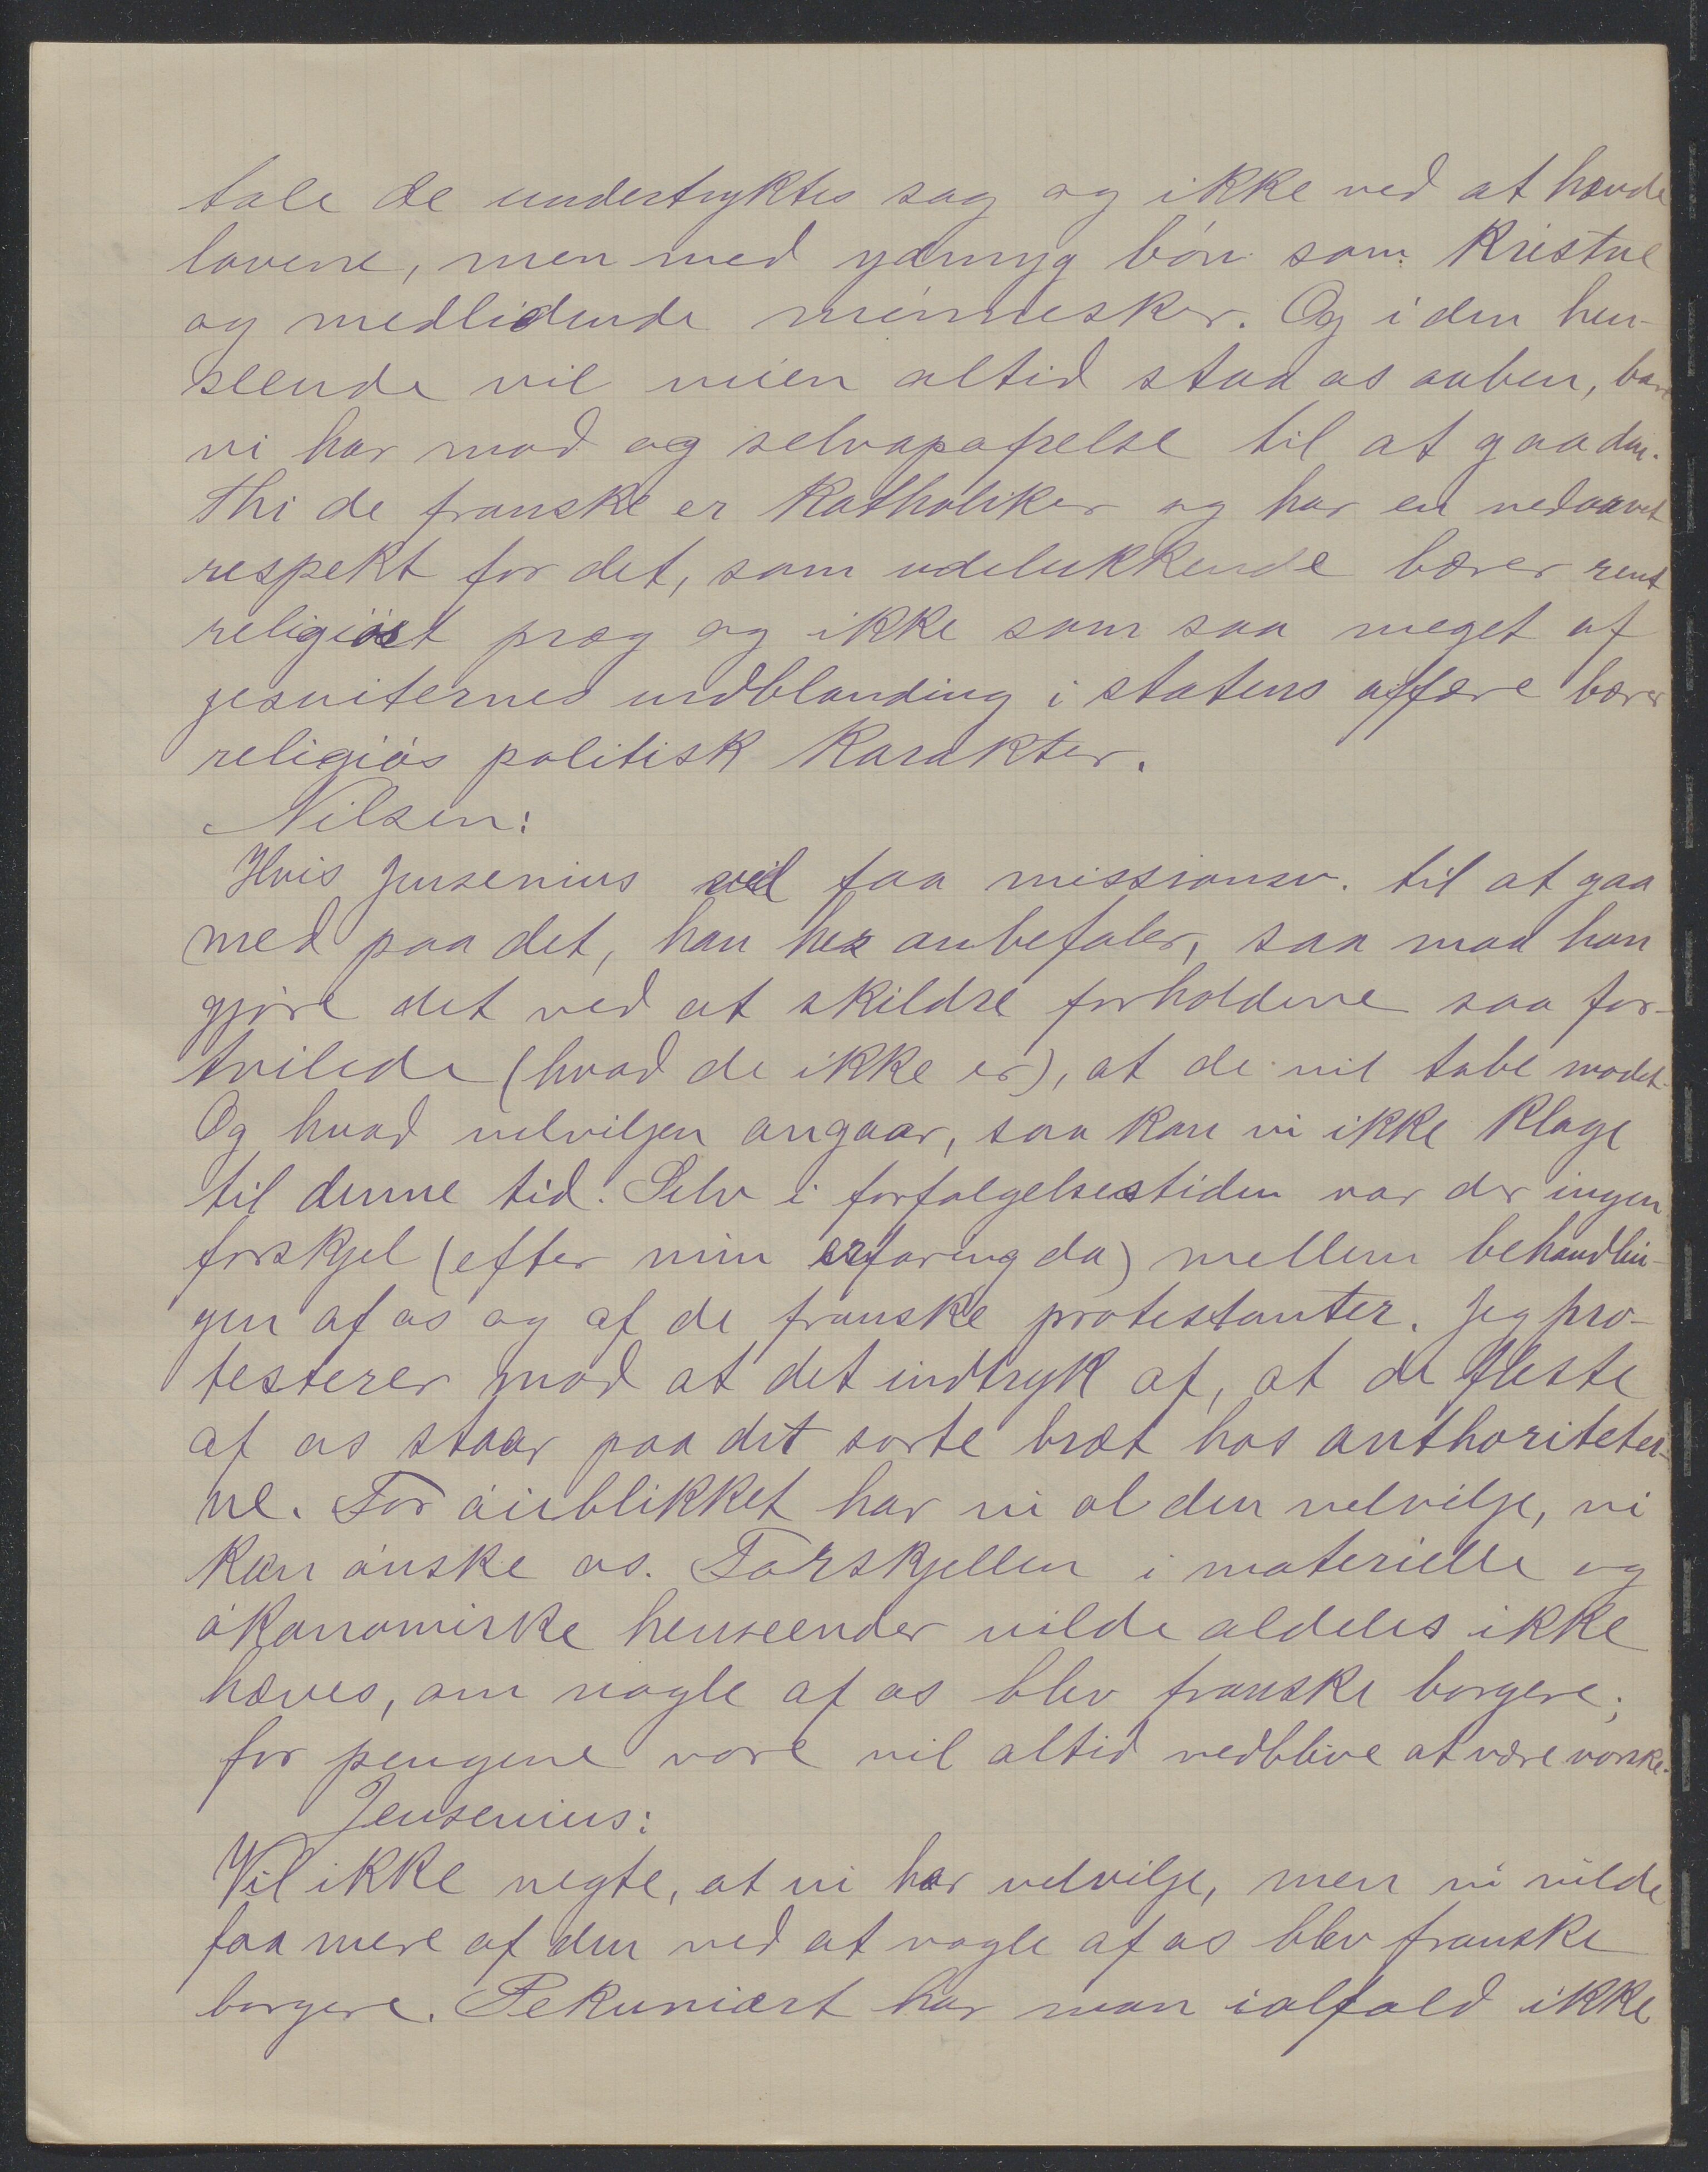 tale de undertryktes sag og ikke ved at hævde
lovene, men med ydmyg bön som kristne
og medlidende mennesker. Og i den hen-
seende vil veien altid staa os aaben, bare
vi har mod og selvopofrelse til at gaa den.
Thi de franske er katholiker og har en nedarvet
respekt for det, som udelukkende bærer rent
religiöst præg og ikke som saa meget af
jesuiternes indblanding i statens affære bærer
religiös politisk karakter.
Nilsen:
Hvis Jensenius vil faa missionsv. til at gaa
med paa det, han her anbefaler, saa maa han
gjöre det ved at skildre forholdene saa for-
tvilede (hvad de ikke er), at de vil tabe modet.
Og hvad velviljen angaar, saa kan vi ikke klage
til denne tid. Selv i forfølgelsestiden var der ingen
forskjel (efter min erfaring da) mellem behandlin-
gen af os og af de franske protestanter. Jeg pro-
testerer mod at det indtryk af, at de fleste
af os staar paa det sorte bræt hos authoriteter-
ne. For öieblikket har vi al den velvilje, vi
kan önske os. Forskjellen i materielle og
ökonomiske henseender vilde aldeles ikke
hæves, om nogle af os blev franske borgere;
for pengene vore vil altid vedblive at være norske.
Jensenius:
Vil ikke negte, at vi har velvilje, men vi vilde
faa mere af den ved at nogle af os blev franske
borgere. Pekuniært har man ialfald ikke